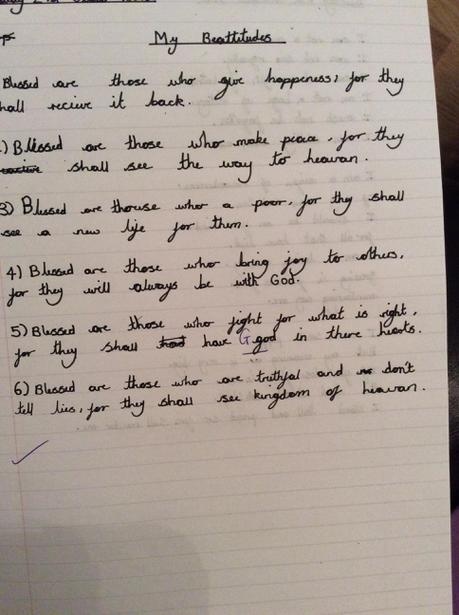 My Beattitudes
Blessed are those who give happeness; for they
hall recieve it back.
) Blessed are those who make peace, for they
shall see the way to heavan.
3) Blessed are thouse who a poor, for thy shall
see a new life for them.
4) Blessed are those who bring joy to others,
for they will always be with God.
5) Blessed are those who fight for what is right,
for they shall have G god in there hearts.
6) Blessed are those who are truthful and don't
tell lies, for they shall see kingdom of heavan.